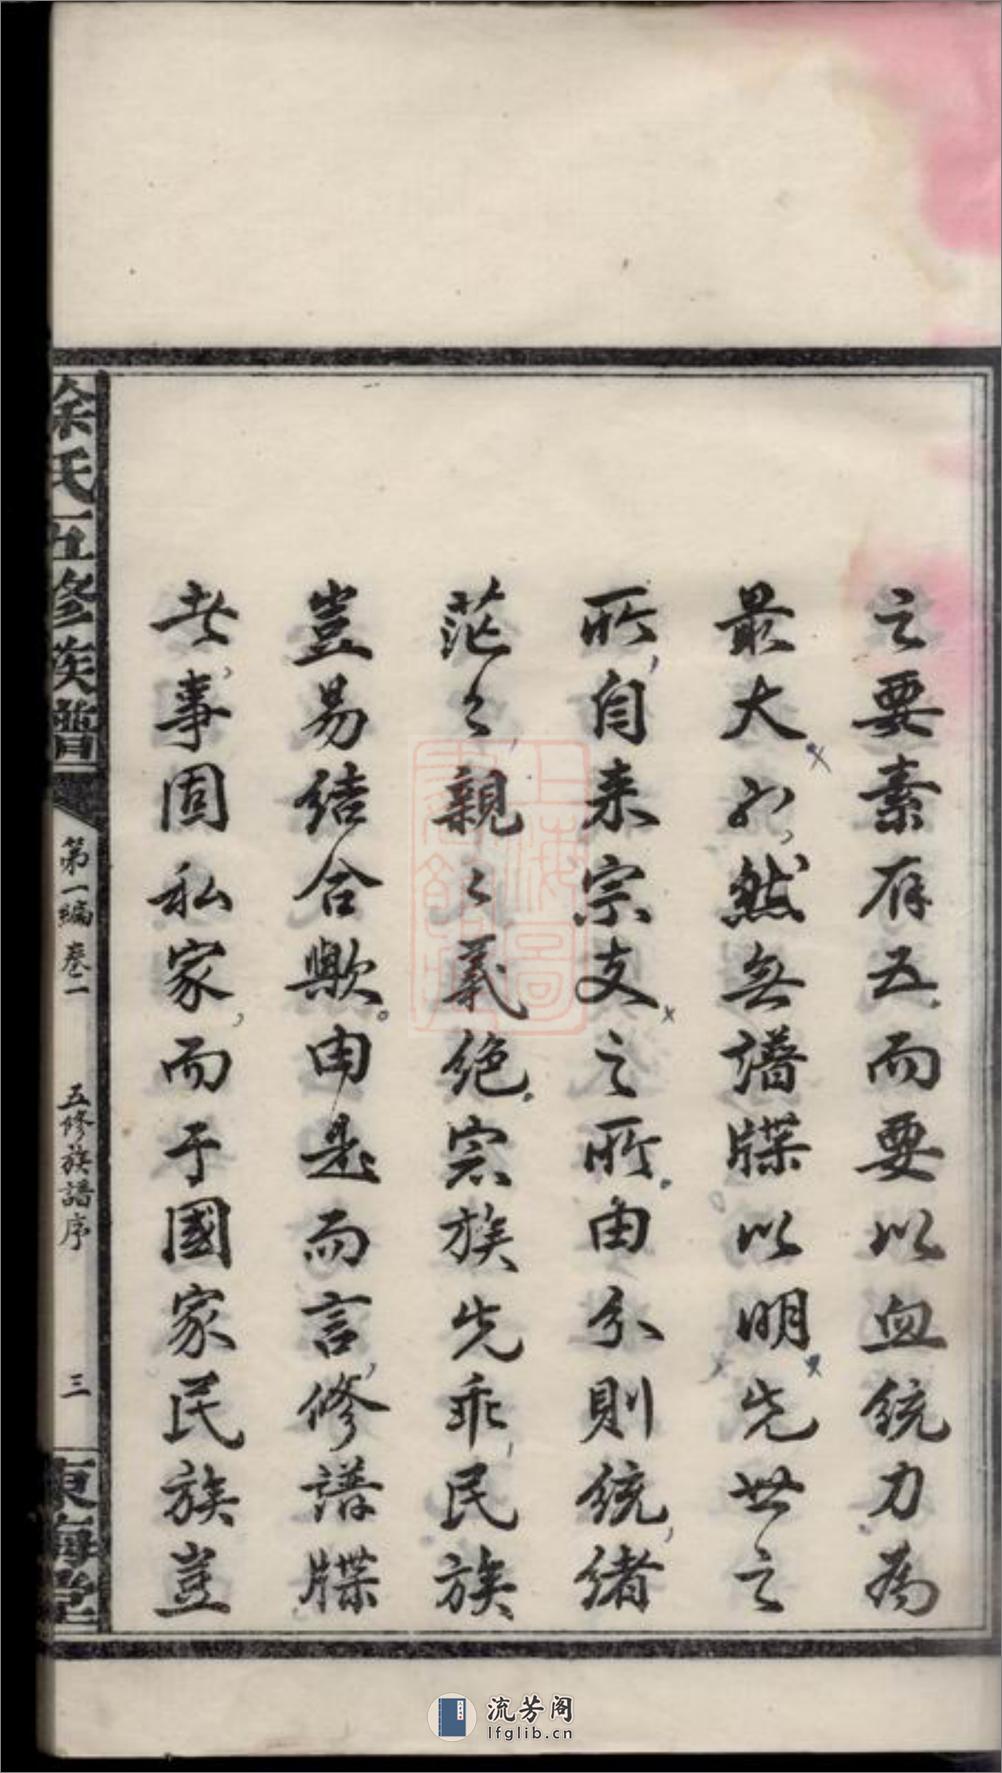 之要素有五而要以血統力為
最大不然無譜牒以明先世之
所自来宗支之所由分則統緒
茫々親々義絶宗族先乖民族
豈易結合歟由是而言修譜牒
此事固私家而于國家民族豈
徐氏五修族譜
第一編卷一
五修族譜序
三
東海堂
上海圖書館藏
流芳阁
lfglib.cn